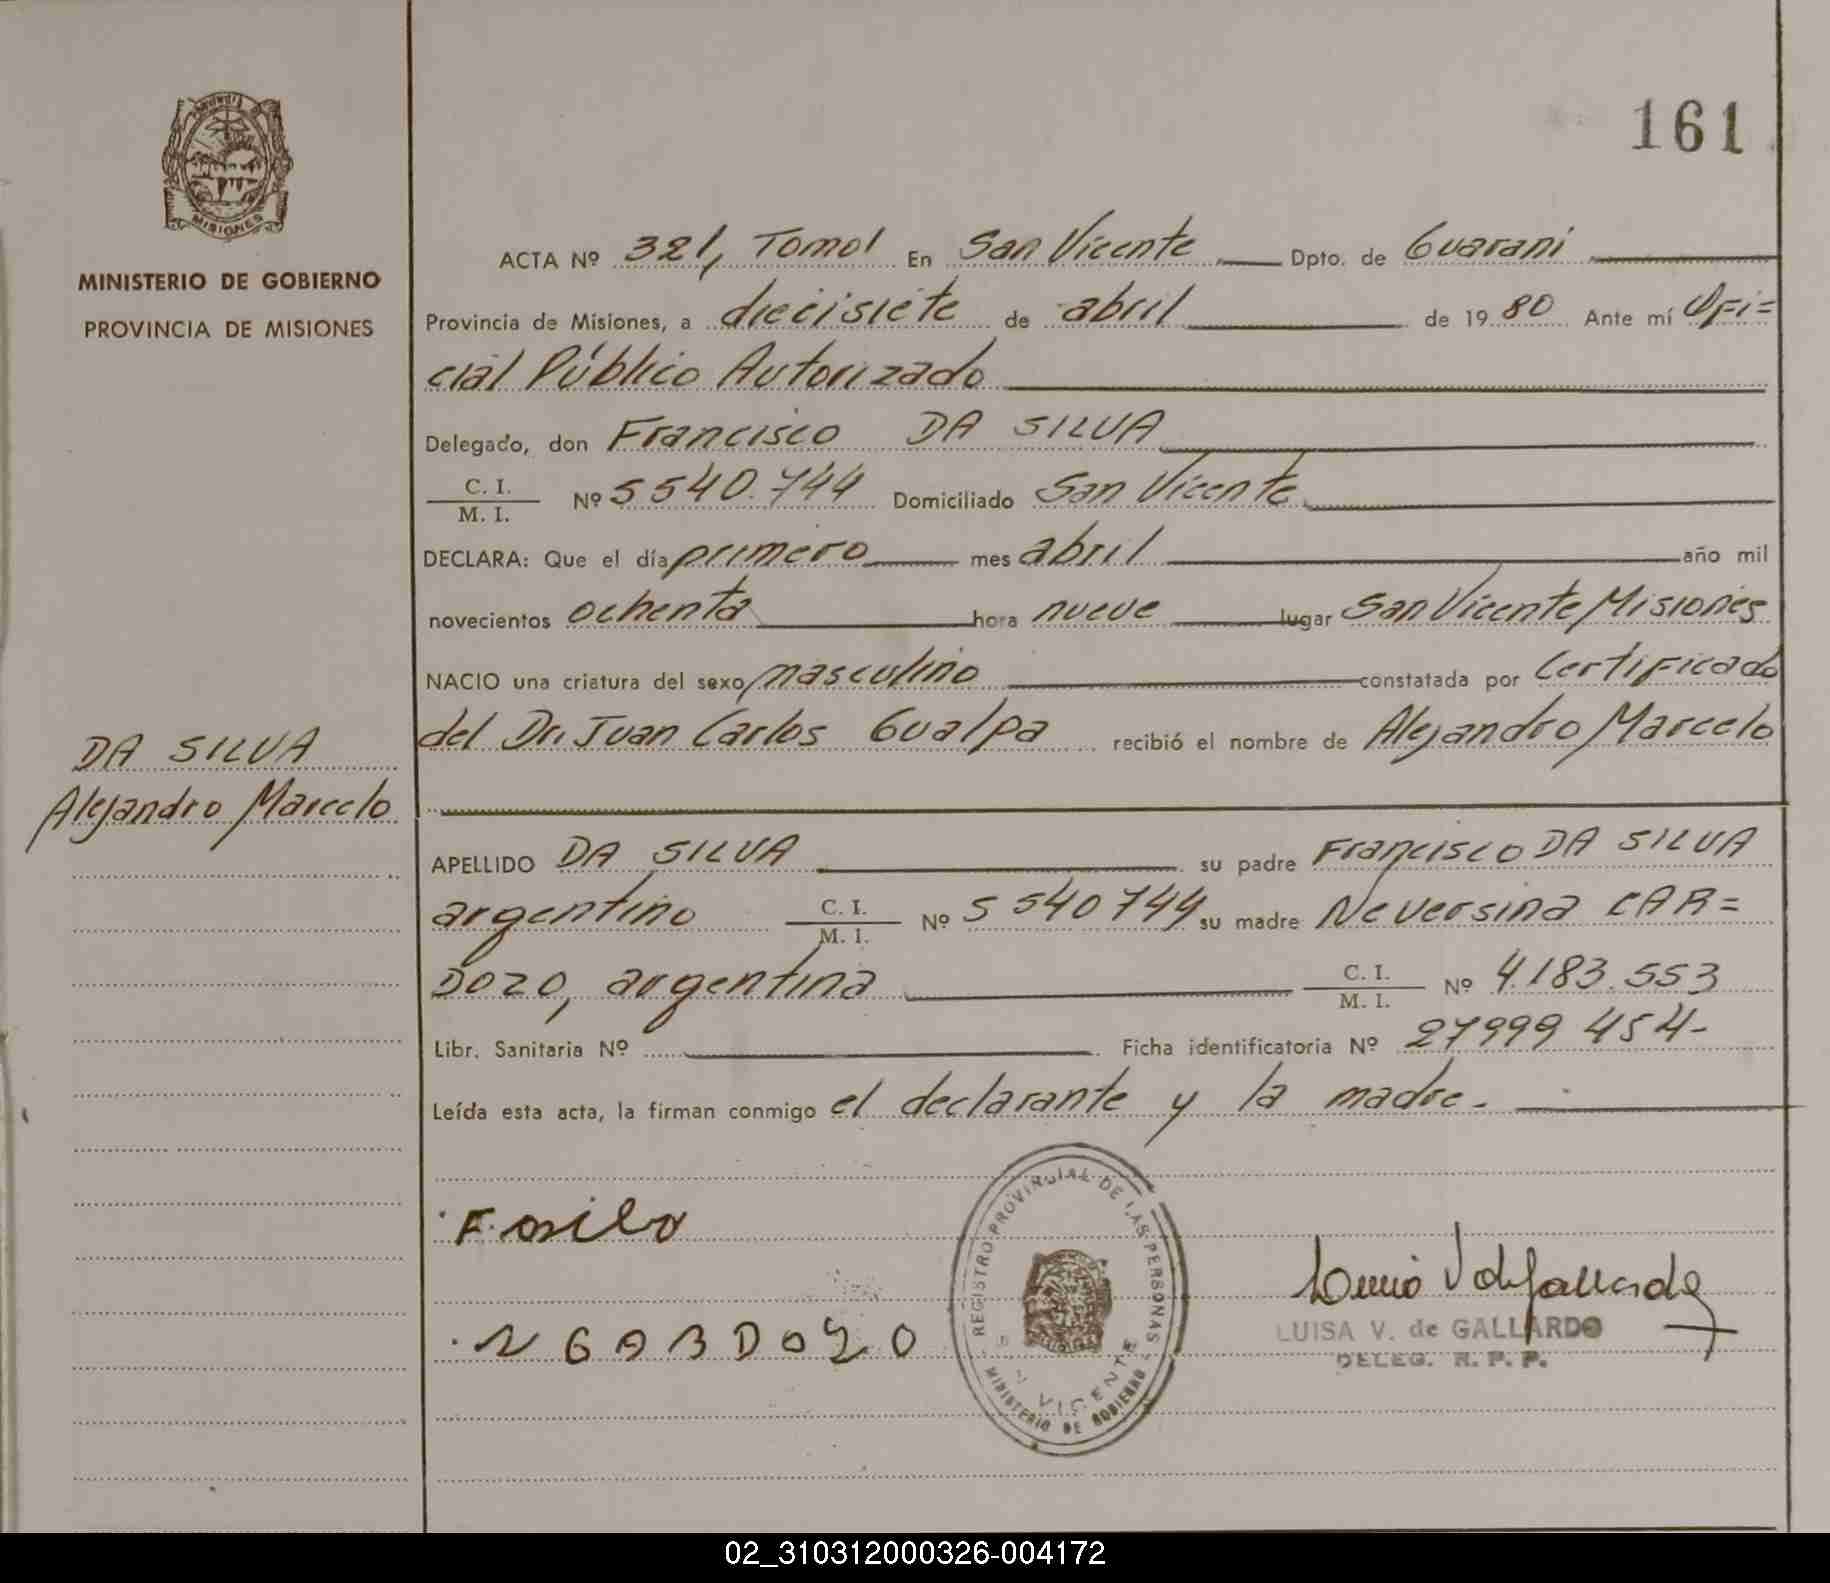 161
MISIONES
MINISTERIO DE GOBIERNO
PROVINCIA DE MISIONES
DA SILVA
Alejandro Marcelo
ACTA Nº 321, Tomo I En San Vicente Dpto. de Guaraní
Provincia de Misiones, a diecisiete de abril de 1980 Ante mí Ofi=
cial Público Autorizado
Delegado, don Francisco DA SILVA
C. I.
M. I. Nº 5540.744 Domiciliado San Vicente
DECLARA: Que el día primero mes abril año mil
novecientos ochenta hora nueve lugar San Vicente Misiones
NACIO una criatura del sexo masculino constatada por Certificado
del Dr. Juan Carlos Gualpa recibió el nombre de Alejandro Marcelo
APELLIDO DA SILVA su padre Francisco DA SILVA
argentino C. I. M. I. Nº 5540744 su madre Neversina CAR=
DOZO, argentina C. I. M. I. Nº 4.183.553
Libr. Sanitaria Nº Ficha identificatoria Nº 27999 454-
Leída esta acta, la firman conmigo el declarante y la madre.
REGISTRO PROVINCIAL DE LAS PERSONAS
VICENTE
MINISTERIO DE GOBIERNO
LUISA V. de GALLARDO
DELEG. R. P. P.
02_310312000326-004172